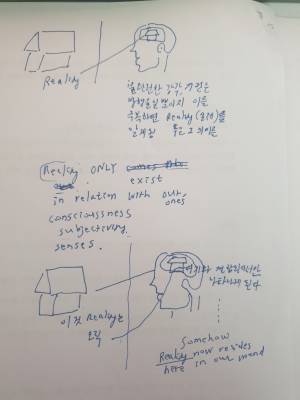 Reality
불완전한 감각 기관은
방해물일 뿐이지 이를
극복하면 Reality (실재)를
Reality ONLY
exist
in relation with our ones
consciousness
subjectivity
senses.
이것 Reality는
오직
여기와 연관되어서만
Somehow
Reality now resides
here in our mind